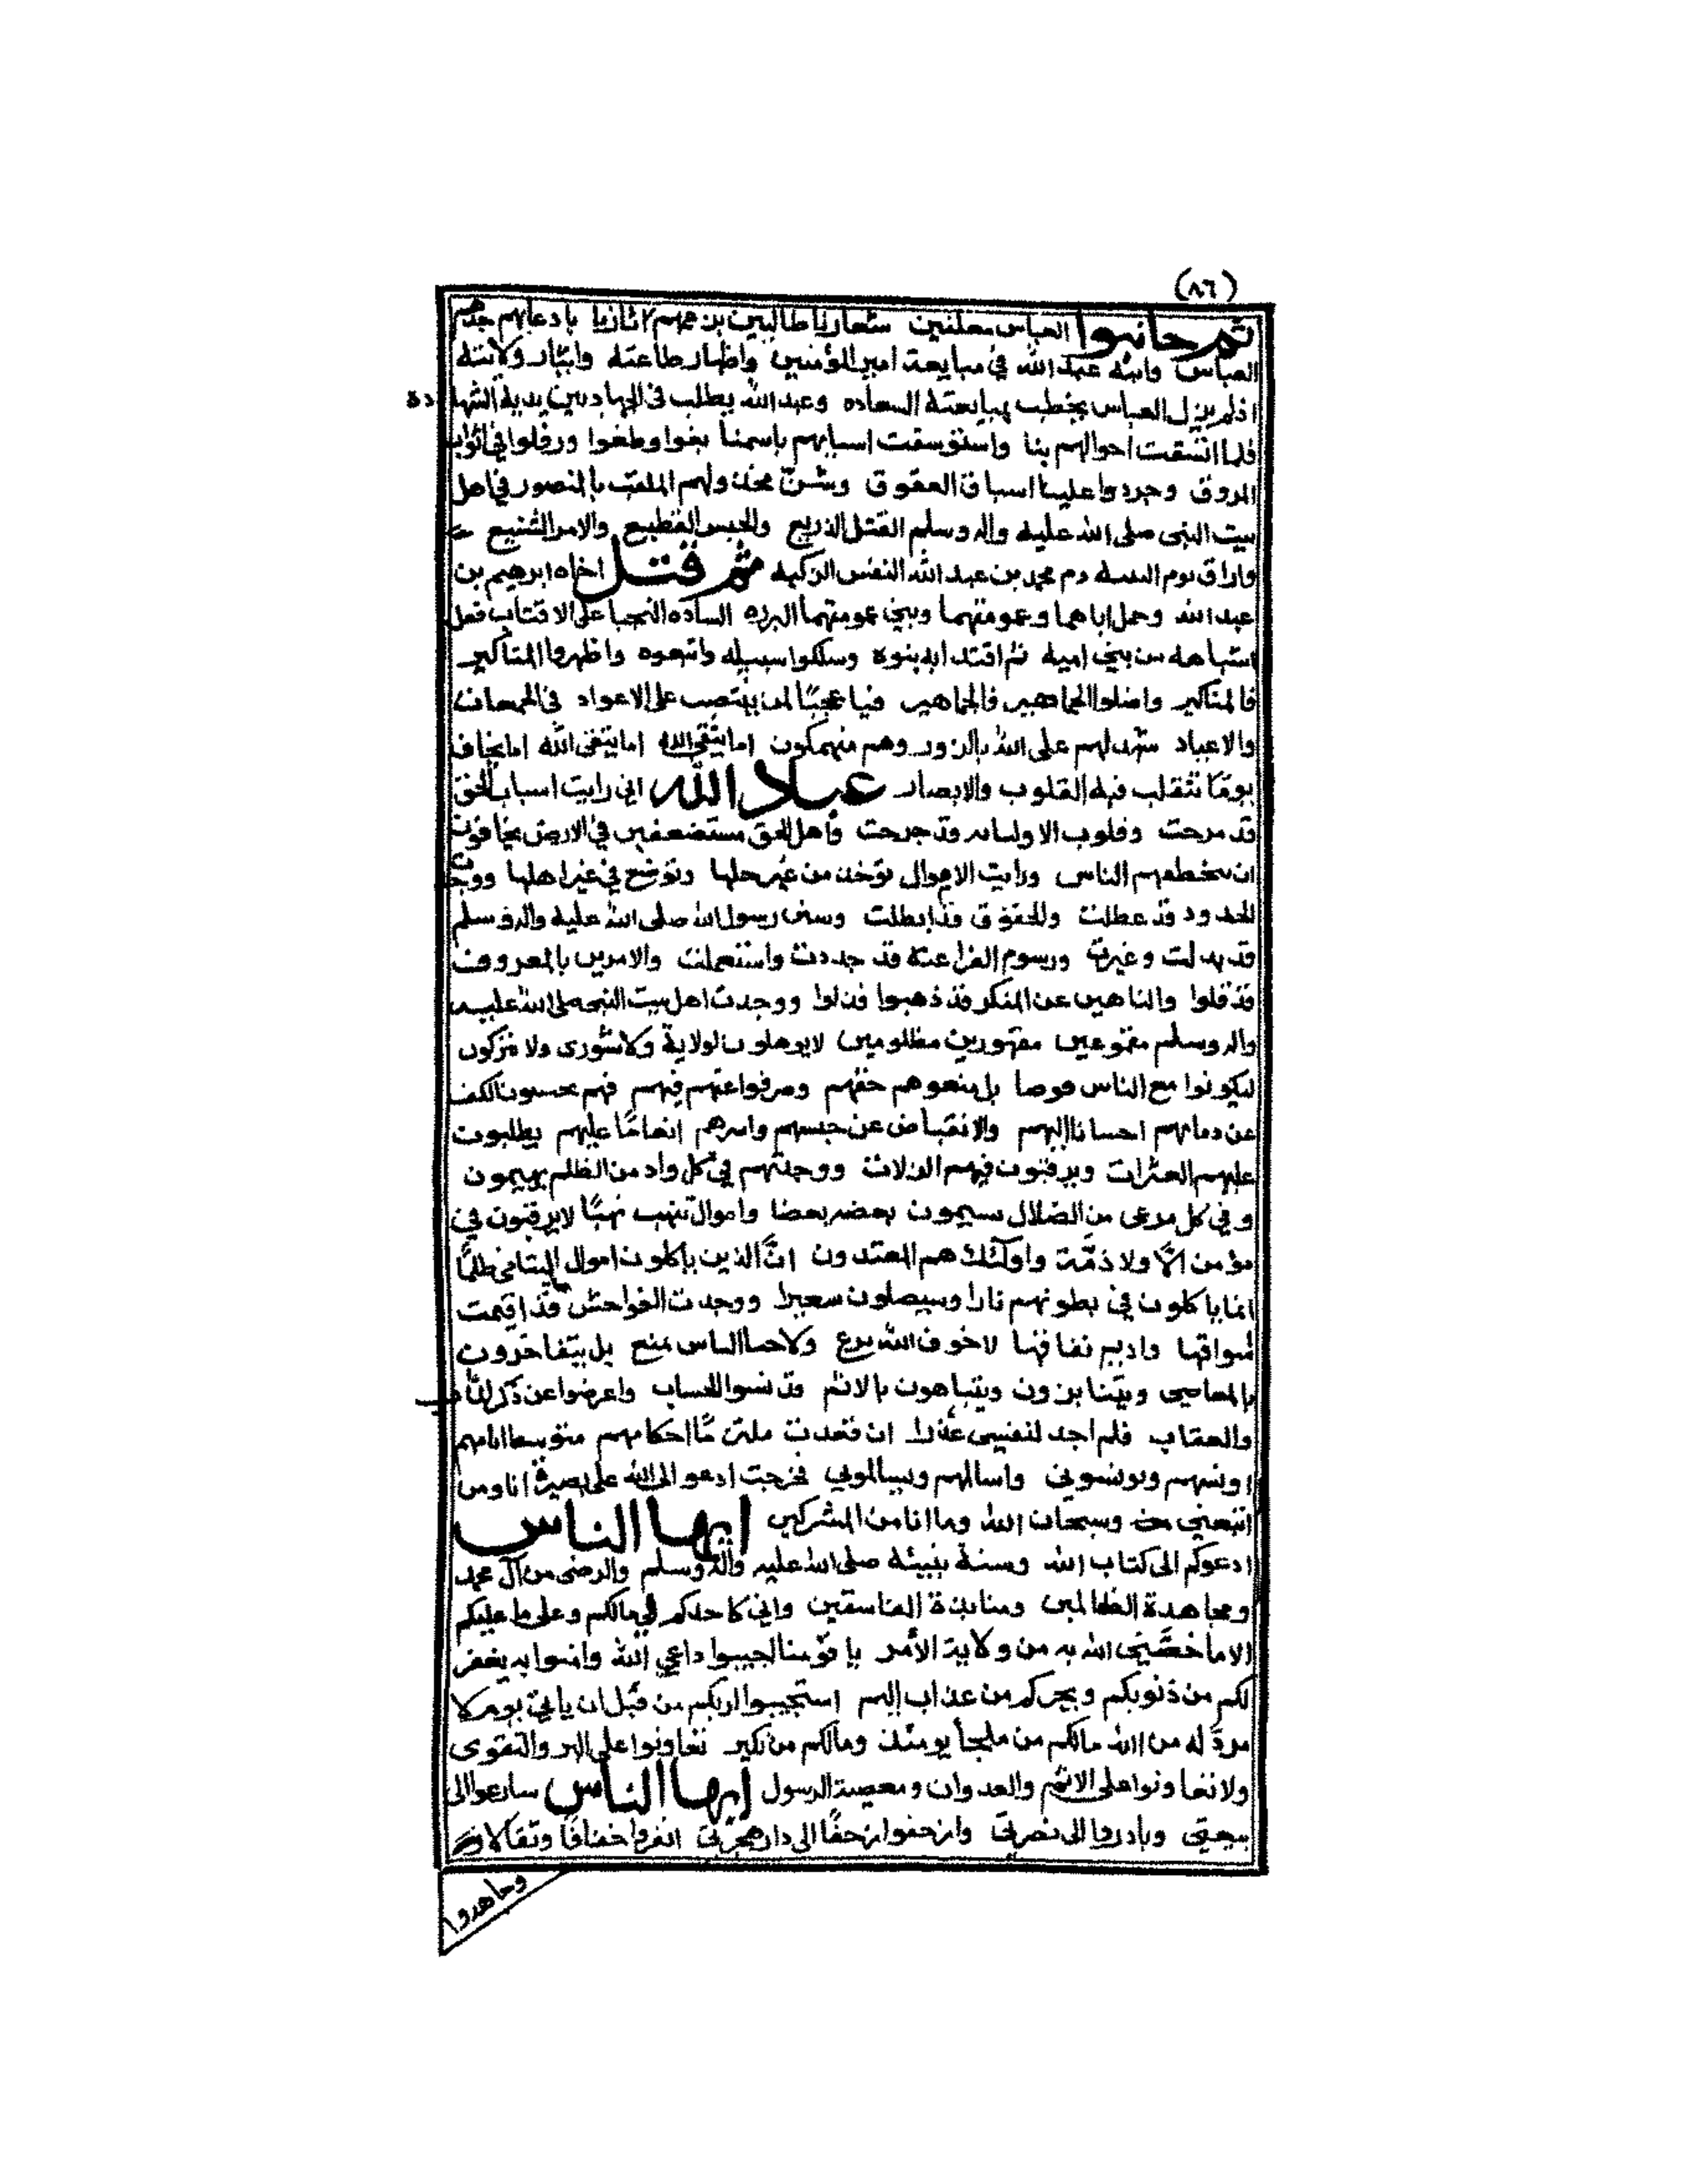 (٨٦)
ثم جانبوا العباس معلنين شعارنا طالبين بزعمهم ثارنا بادعائهم جدهم
العباس وابنه عبد الله في مبايعة امير المؤمنين واظهار طاعته وايثار ولايته
اذ لم يزل العباس يخطب بمبايعته السعاده وعبد الله يطلب في الجهاد بين يديه الشهادة
فلما اتسقت احوالهم بنا واستوسقت اسبابهم باسمنا بغوا وطغوا ورفلوا في اثواب
المروق وجردوا علينا اسياف العقوق وشن مخذولهم الملقب بالمنصور في اهل
بيت النبي صلى الله عليه واله وسلم القتل الذريع والحبس الفظيع والامر الشنيع
واراق يوم المدينه دم محمد بن عبد الله النفس الزكيه ثم قتل اخاه ابرهيم بن
عبد الله وحمل اباهما وعمومتهما وبني عمومتهما البرره الساده النجبا على الاقتاب فعل
اشباهه من بني اميه ثم اقتدا به بنوه وسلكوا سبيله واتبعوه واظهروا المناكير
فالمناكير واضلوا الجماهير فالجماهير فيا عجبًا لمن ينتصب على الاعواد في الجمعات
والاعياد شهد لهم على الله بالزور وهم منهمكون اما يتقي الله اما يتقي الله اما يخاف
يومًا تتقلب فيه القلوب والابصار عباد الله اني رايت اسباب الحق
قد مرجت وقلوب الاولياء به قد جرحت وأهل الحق مستضعفين في الارض يخافون
ان يتخطفهم الناس ورايت الاموال توخذ من غير حلها وتوضع في غير اهلها ووجدت
الحدود قد عطلت والحقوق قد ابطلت وسنن رسول الله صلى الله عليه واله وسلم
قد بدلت وغيرت ورسوم الفراعنة قد جددت واستعملت والامرين بالمعروف
قد قلوا والناهين عن المنكر قد ذهبوا فذلوا ووجدت اهل بيت النبي صلى الله عليه
واله وسلم مقموعين مقهورين مظلومين لا يوهلون لولاية ولا شورى ولا يتركون
ليكونوا مع الناس فوضا بل منعوهم حقهم وصرفوا عنهم فيهم فهم يحسبون الكف
عن دمائهم احسانا اليهم والانقباض عن حبسهم واسرهم انعامًا عليهم يطلبون
عليهم العثرات ويرقبون فيهم الزلات ووجدتهم في كل واد من الظلم يهيمون
وفي كل مرعى من الضلال يسيمون بعضه بعضا واموال تنهب نهبًا لا يرقبون في
مؤمن الًّا ولا ذمَّة واولئك هم المعتدون انَّ الذين ياكلون اموال اليتامى ظلمًا
انما ياكلون في بطونهم نارا وسيصلون سعيرا ووجدت الفواحش قد اقيمت
اسواقها وادير نفاقها لا خوف الله يزع ولا حيا الناس يمنع بل يتفاخرون
بالمعاصي ويتنابزون ويتباهون بالاثم قد نسوا الحساب واعرضوا عن ذكر المآب
والعقاب فلم اجد لنفسي عذرا ان قعدت ملتزمًا احكامهم متوسطا اياهم
اونسهم ويونسوني واسالمهم ويسالموني فخرجت ادعو الى الله على بصيرة انا ومن
اتبعني وسبحان الله وما انا من المشركين ايها الناس
ادعوكم الى كتاب الله وسنة نبيئه صلى الله عليه واله وسلم والرضى من آل محمد
ومجاهدة الظالمين ومنابذة الفاسقين واني كاحدكم لي مالكم وعلي ما عليكم
الا ما خصَّني الله به من ولاية الأمر يا قومنا اجيبوا داعي الله وامنوا به يغفر
لكم من ذنوبكم ويجركم من عذاب اليم استجيبوا لربكم من قبل ان ياتي يوم لا
مردَّ له من الله مالكم من ملجأ يومئذ ومالكم من نكير تعاونوا على البر والتقوى
ولا تعاونوا على الاثم والعدوان ومعصية الرسول ايها الناس سارعوا الى
بيعتي وبادروا الى نصرتي وازحفوا زحفًا الى دار هجرتي انفروا خفافًا وثقالا
وجاهدوا